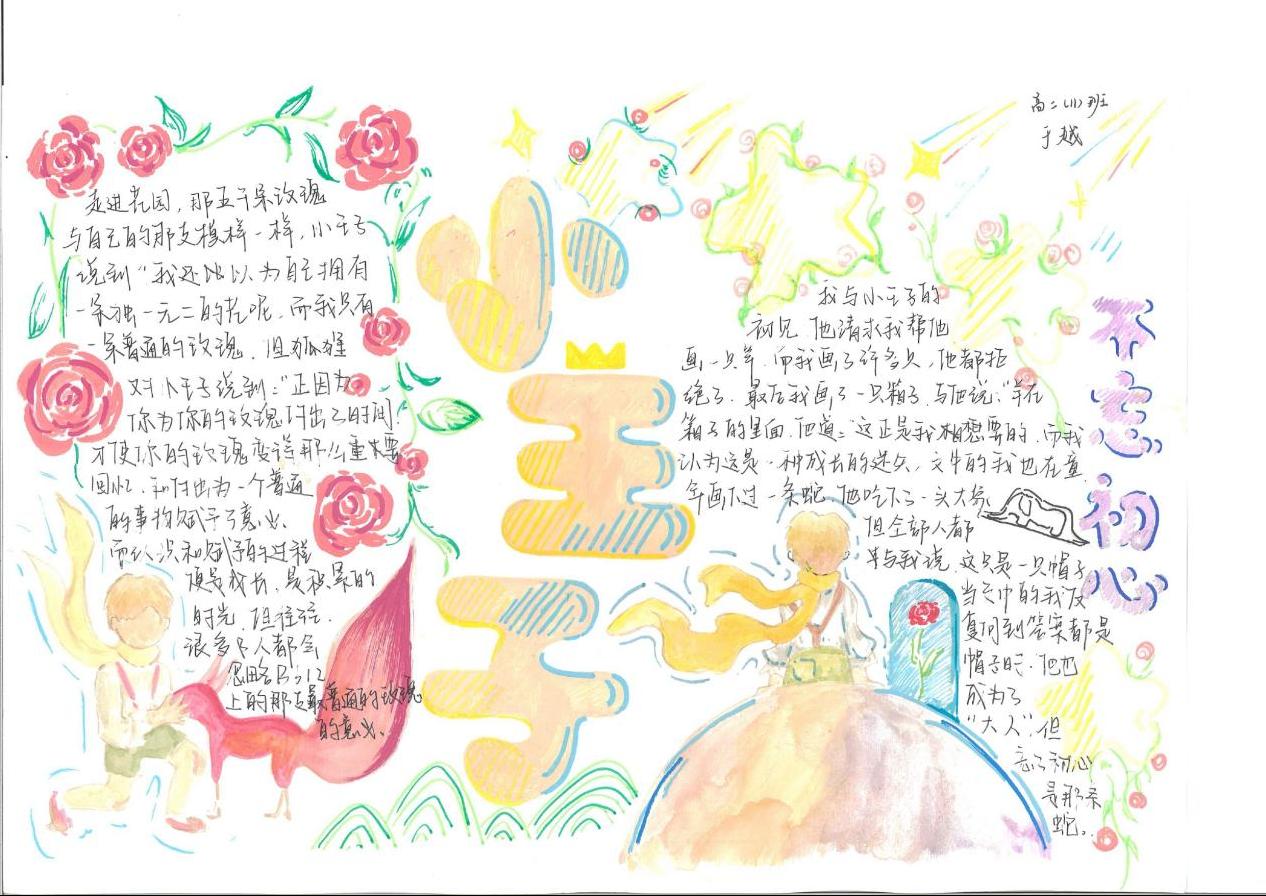 高二(11)班
于越
小王子
不忘初心
走进花园，那五千朵玫瑰
与自己的那支模样一样，小王子
说到“我还以为自己拥有
一朵独一无二的花呢，而我只有
一朵普通的玫瑰，但狐狸
对小王子说到：“正因为
你为你的玫瑰付出了时间
才使你的玫瑰变得那么重要
回忆，和付出为一个普通
的事物赋予了意义、
而认识和赋予的过程
便是成长，是积累的
时光，但往往.
很多个人都会
忽略B612
上的那支最普通的玫瑰
的意义、
我与小王子的
初见 他请求我帮他
画一只羊，而我画了许多只，他都拒
绝了，最后我画了一只箱子，与他说：“羊在
箱子的里面，他道：“这正是我想要的，而我
认为这是一种成长的迷失，文中的我也在童
年画下过一条蛇，他吃下了一头大象
但全部人都
与我说，这只是一只帽子
当文中的我反
复问到答案都是
帽子时，他也
成为了
“大人”，但
忘了初心
是那条
蛇。